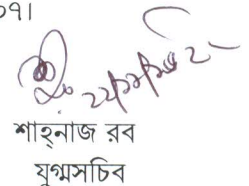 ০৭।
শাহ্‌নাজ রব
যুগ্মসচিব